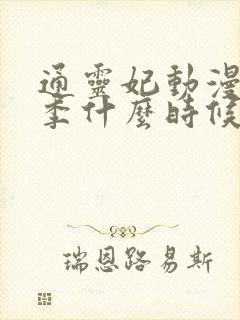 通靈妃動漫
季什麼時候
瑞恩路易斯